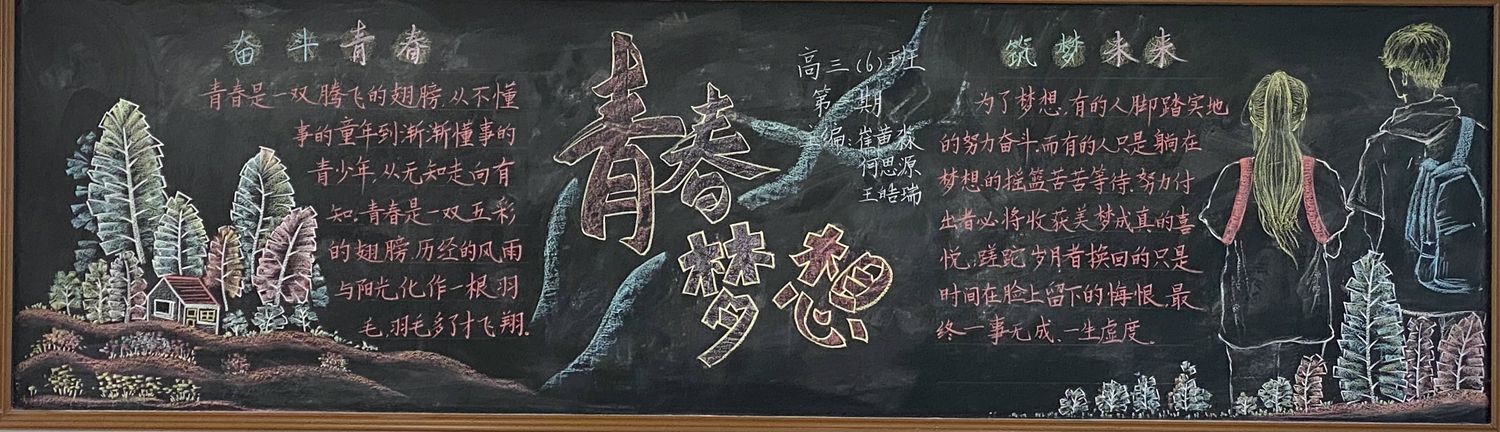 奋斗青春
青春是一双腾飞的翅膀,从不懂
事的童年到渐渐懂事的
青少年,从无知走向有
知,青春是一双五彩
的翅膀,历经的风雨
与阳光化作一根羽
毛,羽毛多了才飞翔.
青春
梦想
高三(6)班
第 期
编:崔黄淼
何思源
王皓瑞
筑梦未来
为了梦想,有的人脚踏实地
的努力奋斗,而有的人只是躺在
梦想的摇篮苦苦等待,努力付
出者必将收获美梦成真的喜
悦,蹉跎岁月者换回的只是
时间在脸上留下的悔恨,最
终一事无成、一生虚度.